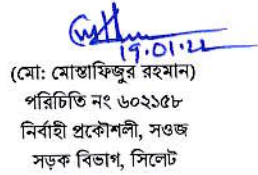 19.01.22
(মো: মোস্তাফিজুর রহমান)
পরিচিতি নং ৬০২১৫৮
নির্বাহী প্রকৌশলী, সওজ
সড়ক বিভাগ, সিলেট